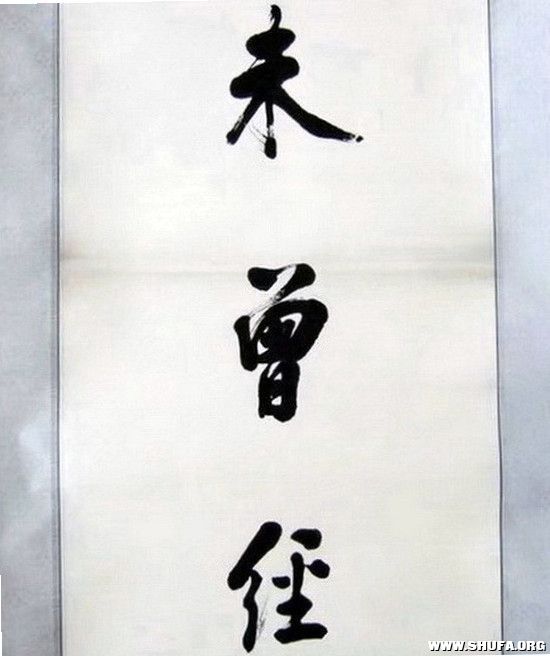 未曾经
WWW.SHUFA.ORG